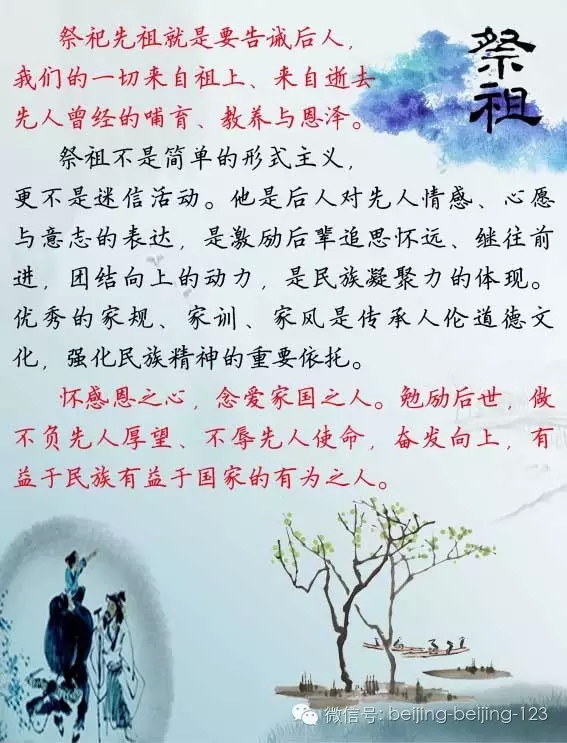 祭祖
祭祀先祖就是要告诫后人，
我们的一切来自祖上、来自逝去
先人曾经的哺育、教养与恩泽。
祭祖不是简单的形式主义，
更不是迷信活动。他是后人对先人情感、心愿
与意志的表达，是激励后辈追思怀远、继往前
进，团结向上的动力，是民族凝聚力的体现。
优秀的家规、家训、家风是传承人伦道德文
化，强化民族精神的重要依托。
怀感恩之心，念爱家国之人。勉励后世，做
不负先人厚望、不辱先人使命，奋发向上，有
益于民族有益于国家的有为之人。
微信号: beijing-beijing-123